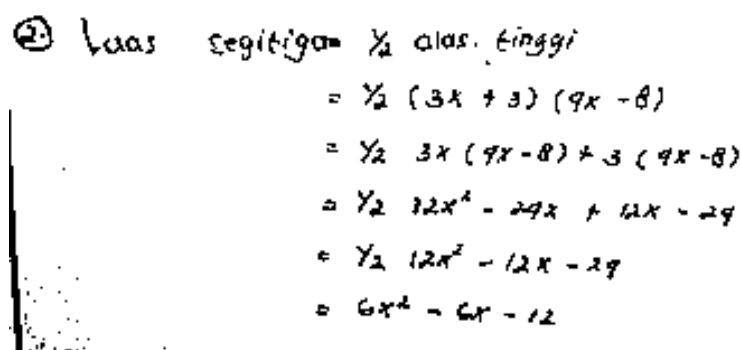 2. Luas segitiga = 1/2 alas. tinggi
= 1/2 (3x + 3) (4x - 8)
= 1/2 3x (4x - 8) + 3 (4x - 8)
= 1/2 12x² - 24x + 12x - 24
= 1/2 12x² - 12x - 24
= 6x² - 6x - 12